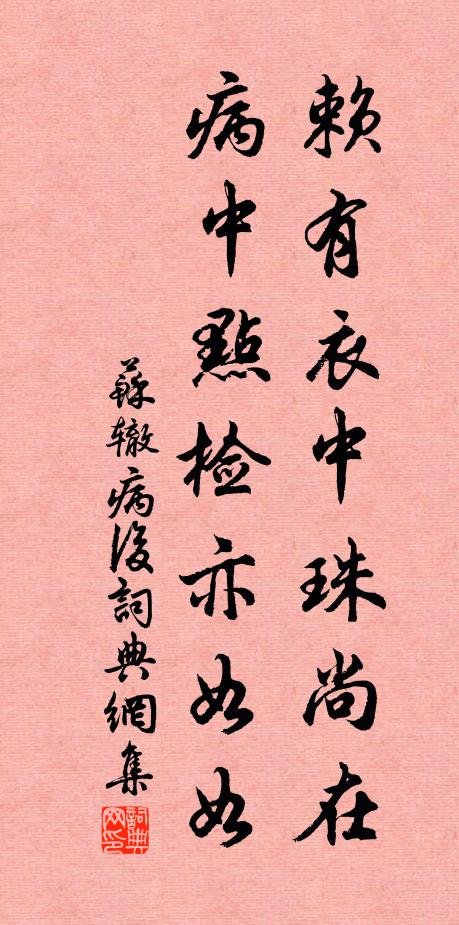 賴有衣中珠尚在
病中點检亦如如
蘇辙病後詞典網集
詞典
网印